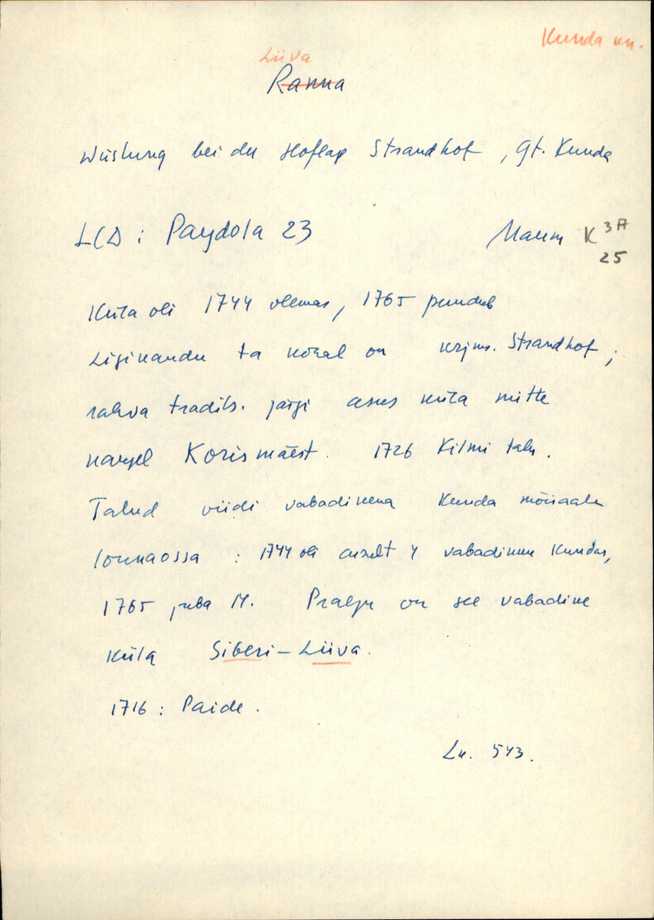 Kunda vn.
Liiva
Ranna
Wüstung bei der Hoflage Strandhof, Gt. Kunda
LCD: Paydola 23 K 3A
25
Küla oli 1744 olemas, 1765 puudub
Ligikaudu ta kohal on krjms. Strandhof;
rahva tradits. järgi asus küla mitte
kaugel Korismäest. 1726 Kilmi talu.
Talud viidi vabadikena Kunda mõisaala
lõunaossa: 1744 oli ainult 4 vabadikku Kundas,
1765 juba 14. Praegu on see vabadike
küla Siberi-Liiva.
1716: Paide.
Lk. 543.